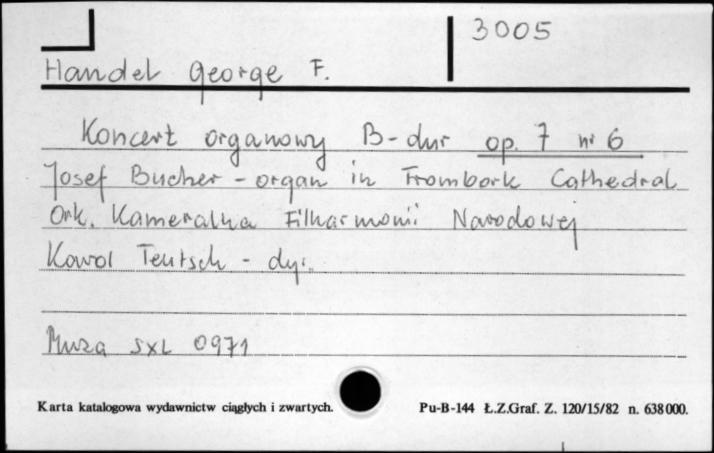 3005
Handel George F.
Koncert organowy B-dur op. 7 nr 6
Josef Bucher - organ in Frombork Cathedral
Ork. Kameralna Filharmonii Narodowej
Karol Teutsch - dyr.
Muza SXL 0971
Karta katalogowa wydawnictw ciągłych i zwartych.
Pu-B-144 Ł.Z.Graf. Z. 120/15/82 n. 638000.